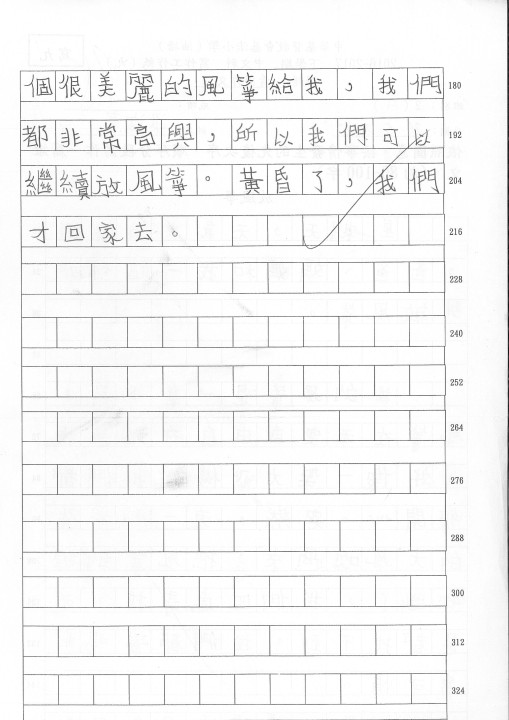 個很美麗的風箏給我，我們 180
都非常高興，所以我們可以 192
繼續放風箏。黃昏了，我們 204
才回家去。 216
228
240
252
264
276
288
300
312
324